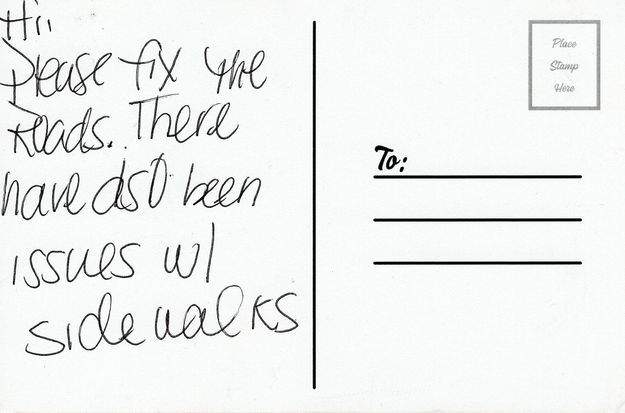 Hi,
Please fix the
Roads. There
have also been
issues w/
sidewalks
Place
Stamp
Here
To: